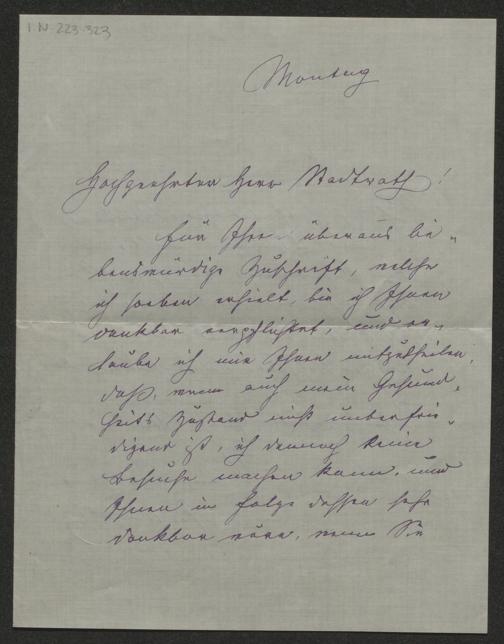 I.N. 223.323
Montag
Hochgeehrter Herr Stadtrath!
Für Ihre überaus lie-
benswürdige Zuschrift, welche
ich soeben erhielt, bin ich Ihnen
dankbar verpflichtet, und er-
laube ich mir Ihnen mitzutheilen,
daß, wenn auch mein Gesund-
heits Zustand nicht unbefrie-
digend ist, ich dennoch keine
Besuche machen kann, und
Ihnen in Folge dessen sehr
dankbar wäre, wenn Sie